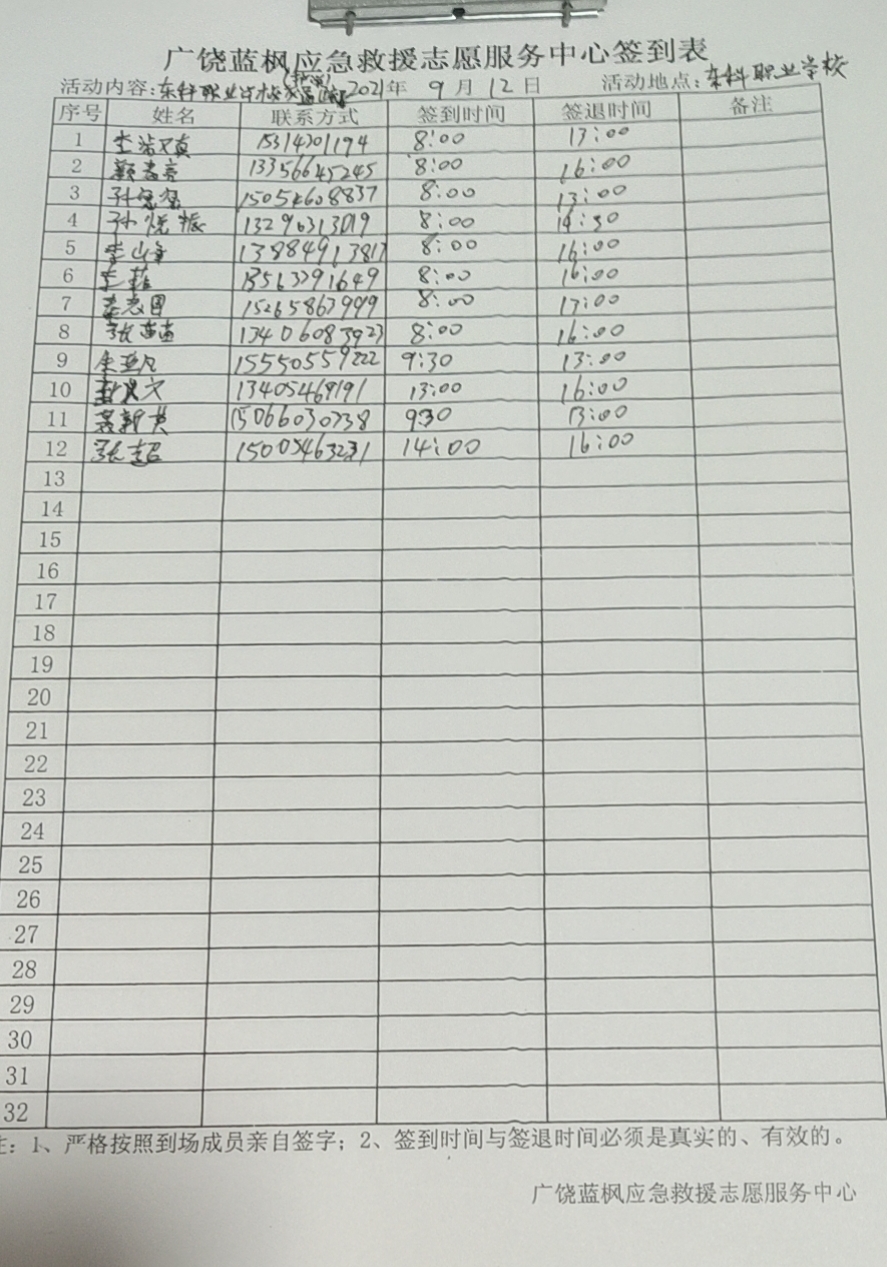 广饶蓝枫应急救援志愿服务中心签到表
活动内容:东科职业学校 2021年 9月12日 活动地点:东科职业学校
序号 姓名 联系方式 签到时间 签退时间 备注
1 15314201194 8:00 13:00
2 13356645245 8:00 16:00
3 8:00 13:00
4 孙悦振 8:00 14:30
5 李山峰 8:00 16:00
6 李菲 8:00 16:00
7 15265863999 8:00 17:00
8 张苗苗 13406083923 8:00 16:00
9 15550559222 9:30 13:00
10 13405469191 13:00 16:00
11 15066030738 930 13:00
12 张超 14:00 16:00
13
14
15
16
17
18
19
20
21
22
23
24
25
26
27
28
29
30
31
32
注:1、严格按照到场成员亲自签字;2、签到时间与签退时间必须是真实的、有效的。
广饶蓝枫应急救援志愿服务中心